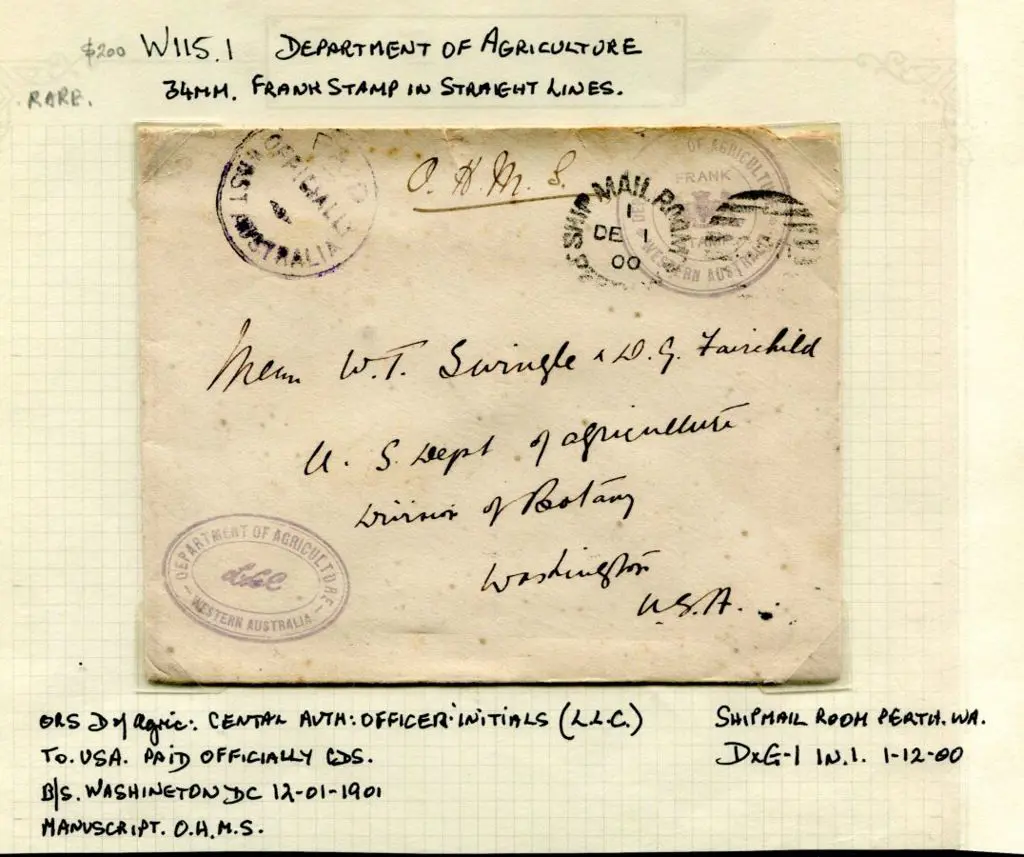 $200 W115.1 DEPARTMENT OF AGRICULTURE
RARE. 34MM. FRANK STAMP IN STRAIGHT LINES.
OFFICIALLY
AUSTRALIA
O. H. M. S.
SHIP MAIL ROOM
1
DE 1
00
OF AGRICULTU
FRANK
WESTERN AUSTRALIA
W. T. Swingle & D. G. Fairchild
U. S. Dept of agriculture
Division of Botany
Washington
U.S.A.
DEPARTMENT OF AGRICULTURE
LLC
WESTERN AUSTRALIA
ORS D of Agric: CENTAL AUTH: OFFICER INITIALS (L.L.C.)
TO. USA. PAID OFFICIALLY CDS.
B/S. WASHINETON DC 12-01-1901
MANUSCRIPT. O.H.M.S.
SHIPMAIL ROOM PERTH. WA.
DxG-1 IN.1. 1-12-00